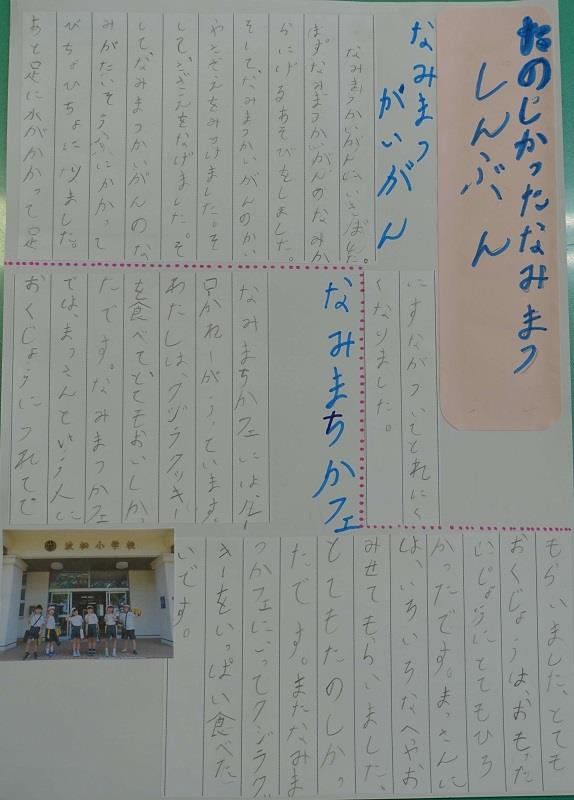 たのしかったなみまつ
しんぶん
なみまつ
がいがん
なみまつかいがんにいきました。
まずなみまつかいがんのなみか
らにげるあそびをしました。
そして、なみまつかいがんのかい
やさざえをみつけました。そ
して、さざえをなげました。そ
して、なみまつかいがんのな
みがたいそうふくにかかって
びちょびちょになりました。
あと足に水がかかって足
にすながついてとれにく
くなりました。
なみまちかフェ
なみまちかフェには
かれーがうっています。
わたしは、クジラクッキー
を食べて、とてもおいしかっ
たです。なみまつかフェ
では、まっさんという人に
おくじょうにつれてて
もらいました、とても
おくじょうは、おもった
いじょうにとてもひろ
かったです。まっさんに
は、いろいろなへやお
みせてもらいました、
とてもたのしかっ
たです。またなみま
つかフェにいってクジラクッ
キーをいっぱい食べた
いです。
波松小学校